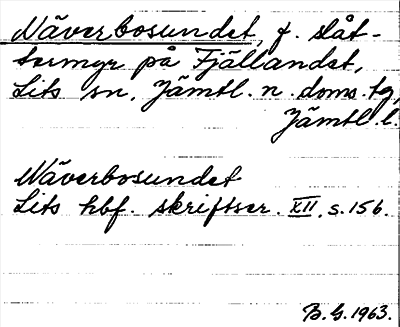 Näverbosundet, f. slåt-
termyr på Fjällandet,
Lits sn, Jämtl. n. doms. tg,
Jämtl. l.
Näverbosundet
Lits hbf. skriftser. XII, s. 156.
B. G. 1963.